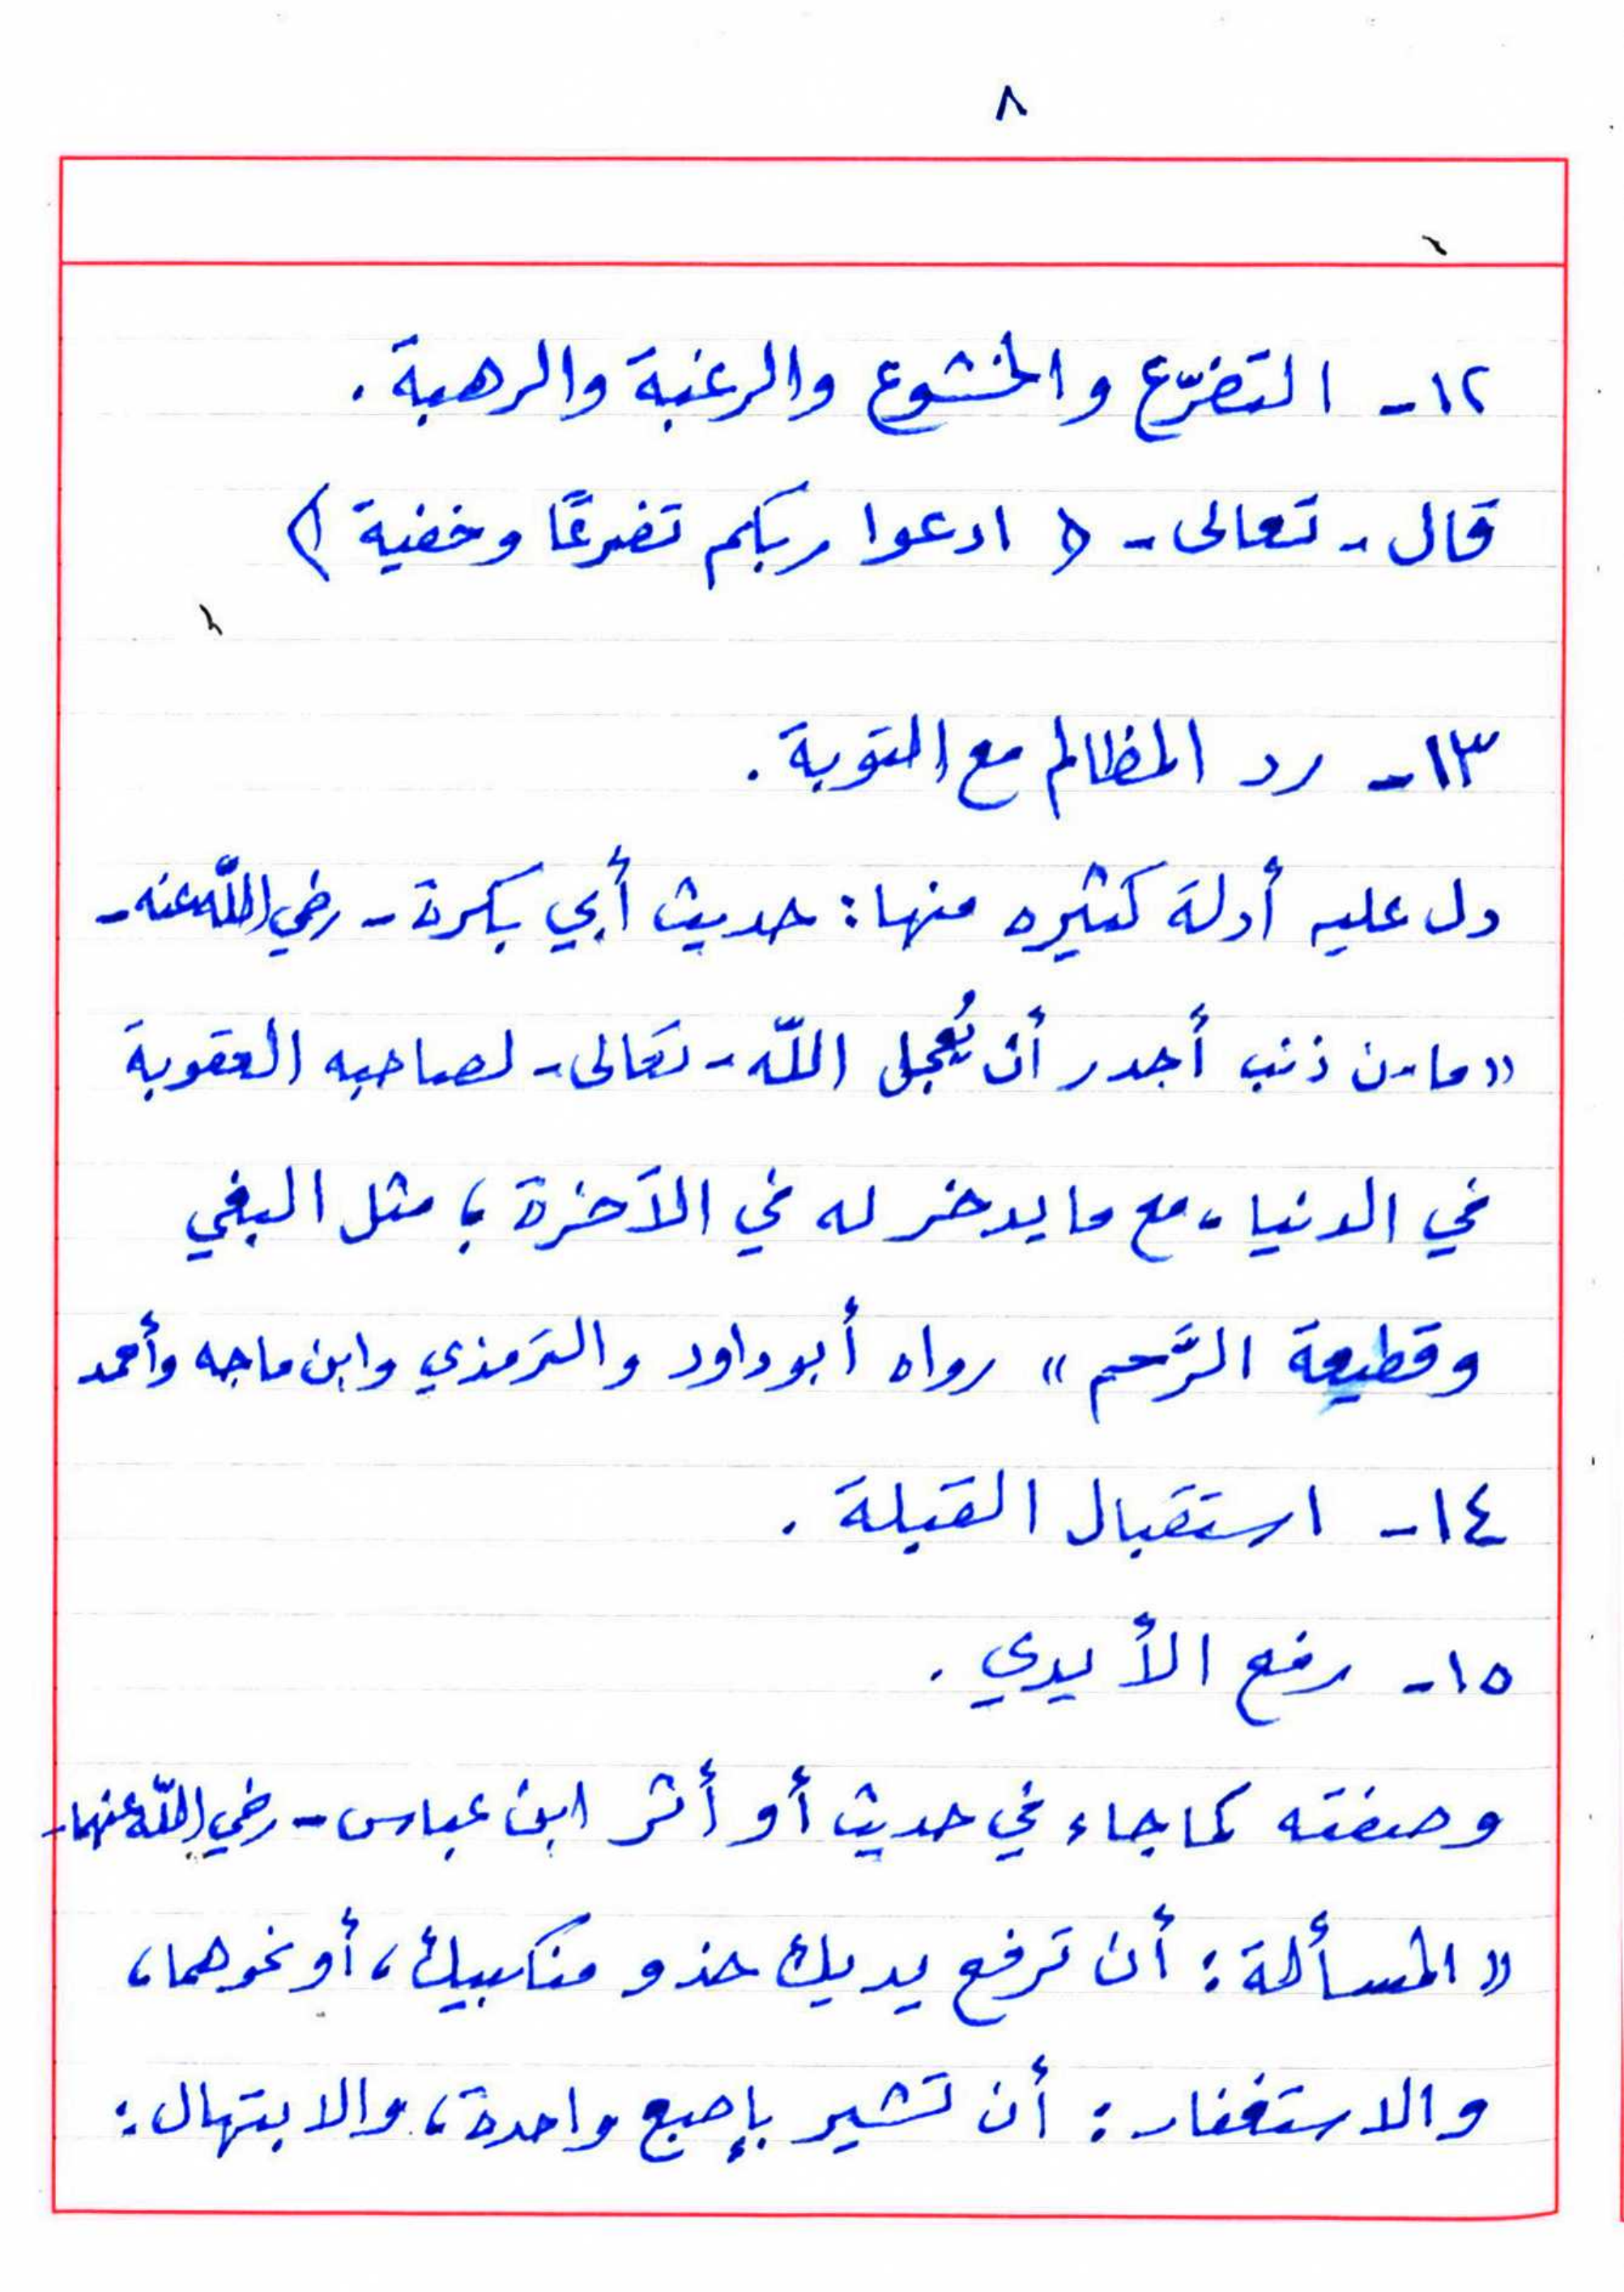 ٨
١٢- التضرّع والخشوع والرغبة والرهبة.
قال - تعالى - ﴿ ادعوا ربكم تضرعًا وخفية ﴾
١٣- رد المظالم مع التوبة.
دل عليه أدلة كثيره منها: حديث أبي بكرة - رضي الله عنه -
«ما من ذنب أجدر أن يُعجل اللّه - تعالى - لصاحبه العقوبة
في الدنيا، مع ما يدخر له في الآخرة، مثل البغي
وقطيعة الرَّحم» رواه أبو داود والترمذي وابن ماجه وأحمد
١٤- استقبال القبلة.
١٥- رفع الأيدي.
وصفته كما جاء في حديث أو أثر ابن عباس - رضي اللّه عنهما -
«المسألة: أن ترفع يديك حذو منكبيك، أو نحوهما،
والاستغفار: أن تشير بإصبع واحدة، والابتهال: